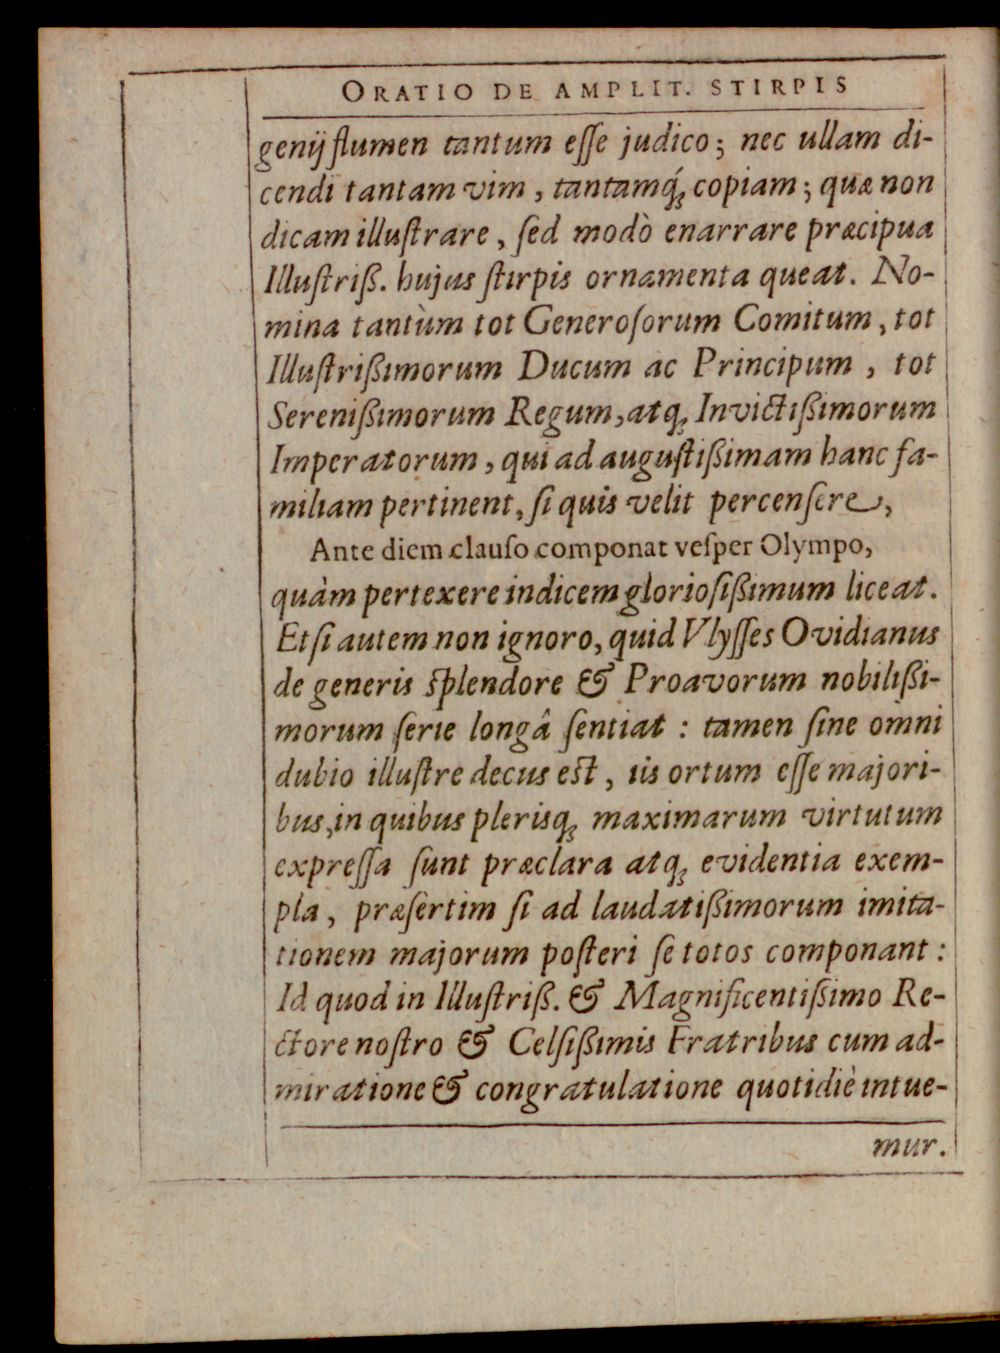 ORATIO DE AMPLIT. STIRPIS
genij flumen tantum eſſe judico; nec ullam di-
cendi tantam vim, tantamq́ꝫ copiam; quæ non
dicam illuſtrare, ſed modò enarrare præcipua
Illuſtriß. hujus ſtirpis ornamenta queat. No-
mina tantùm tot Generoſorum Comitum, tot
Illuſtrißimorum Ducum ac Principum, tot
Serenißimorum Regum, atqꝫ Invictißimorum
Imperatorum, qui ad auguſtißimam hanc fa-
miliam pertinent, ſi quis velit percenſere,
Ante diem clauſo componat veſper Olympo,
quàm pertexere indicem glorioſißimum liceat.
Etſi autem non ignoro, quid Vlyſſes Ovidianus
de generis ſplendore & Proavorum nobilißi-
morum ſerie longâ ſentiat: tamen ſine omni
dubio illuſtre decus eſt, iis ortum eſſe majori-
bus, in quibus plerisqꝫ maximarum virtutum
expreſſa ſunt præclara atqꝫ evidentia exem-
pla, præſertim ſi ad laudatißimorum imita-
tionem majorum poſteri ſe totos componant:
Id quod in Illuſtriß. & Magnificentißimo Re-
ctore noſtro & Celſißimis Fratribus cum ad-
miratione & congratulatione quotidiè intue-
mur.